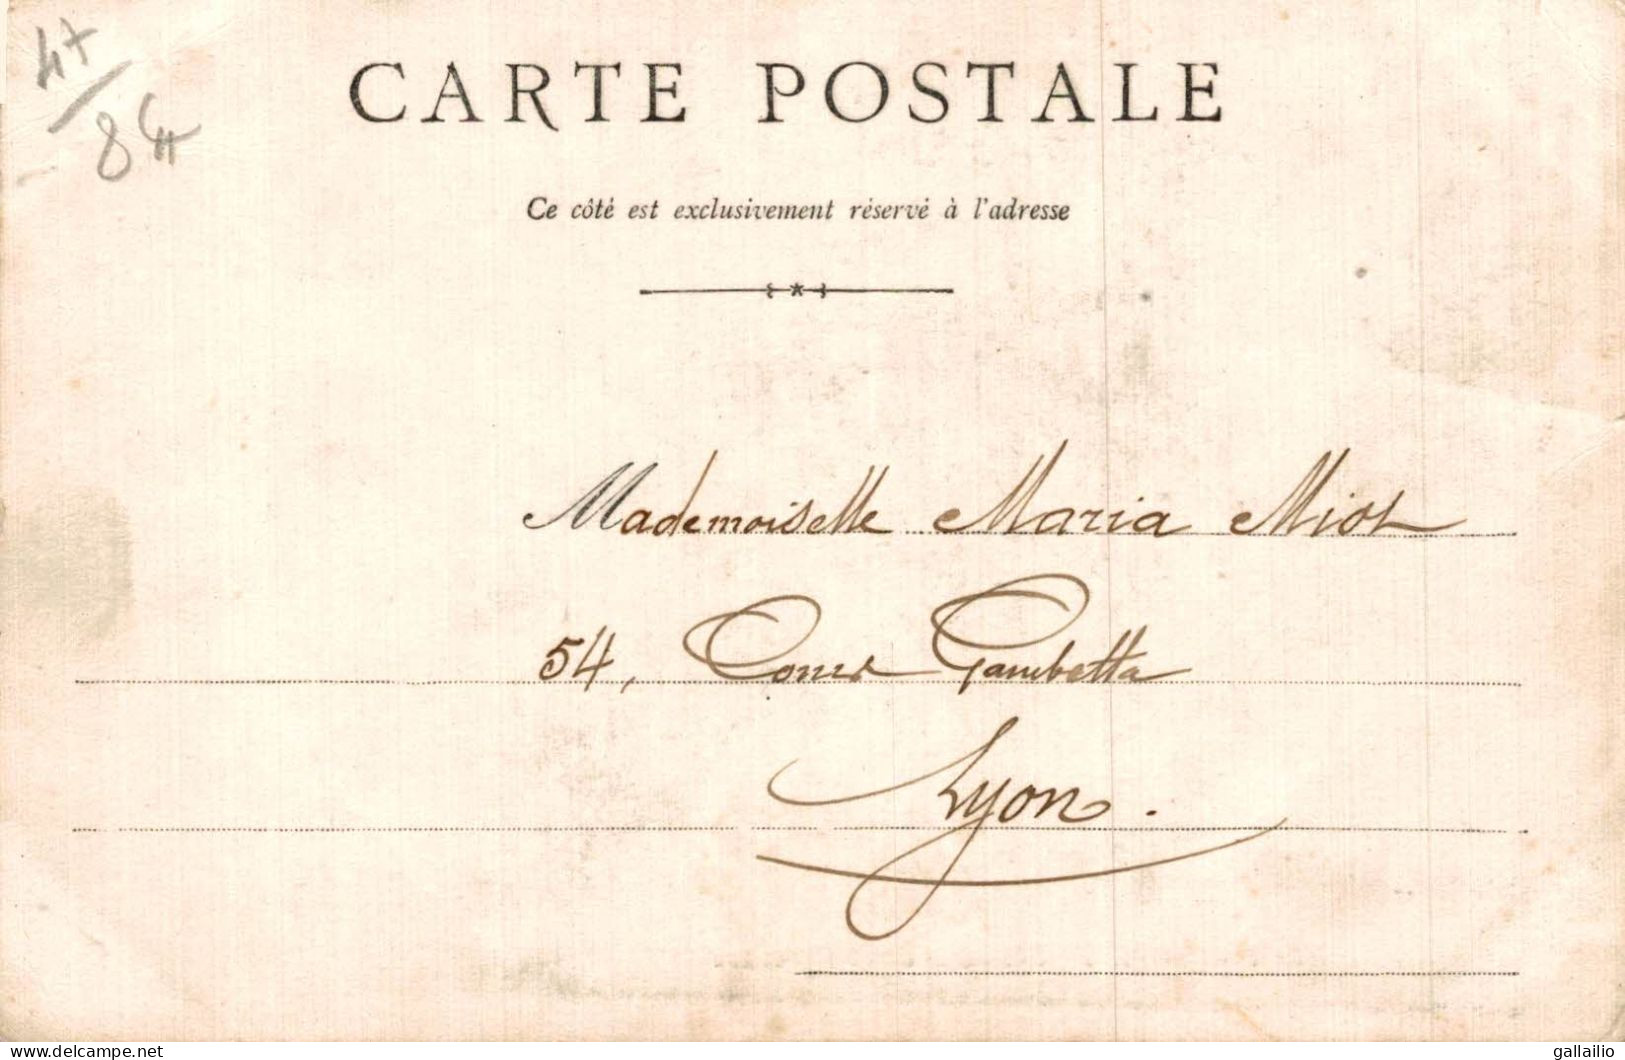 CARTE POSTALE
Ce côté est exclusivement réservé à l'adresse
Mademoiselle Maria Miot
54, Cours Gambetta
Lyon.
delcampe.net
gallailio